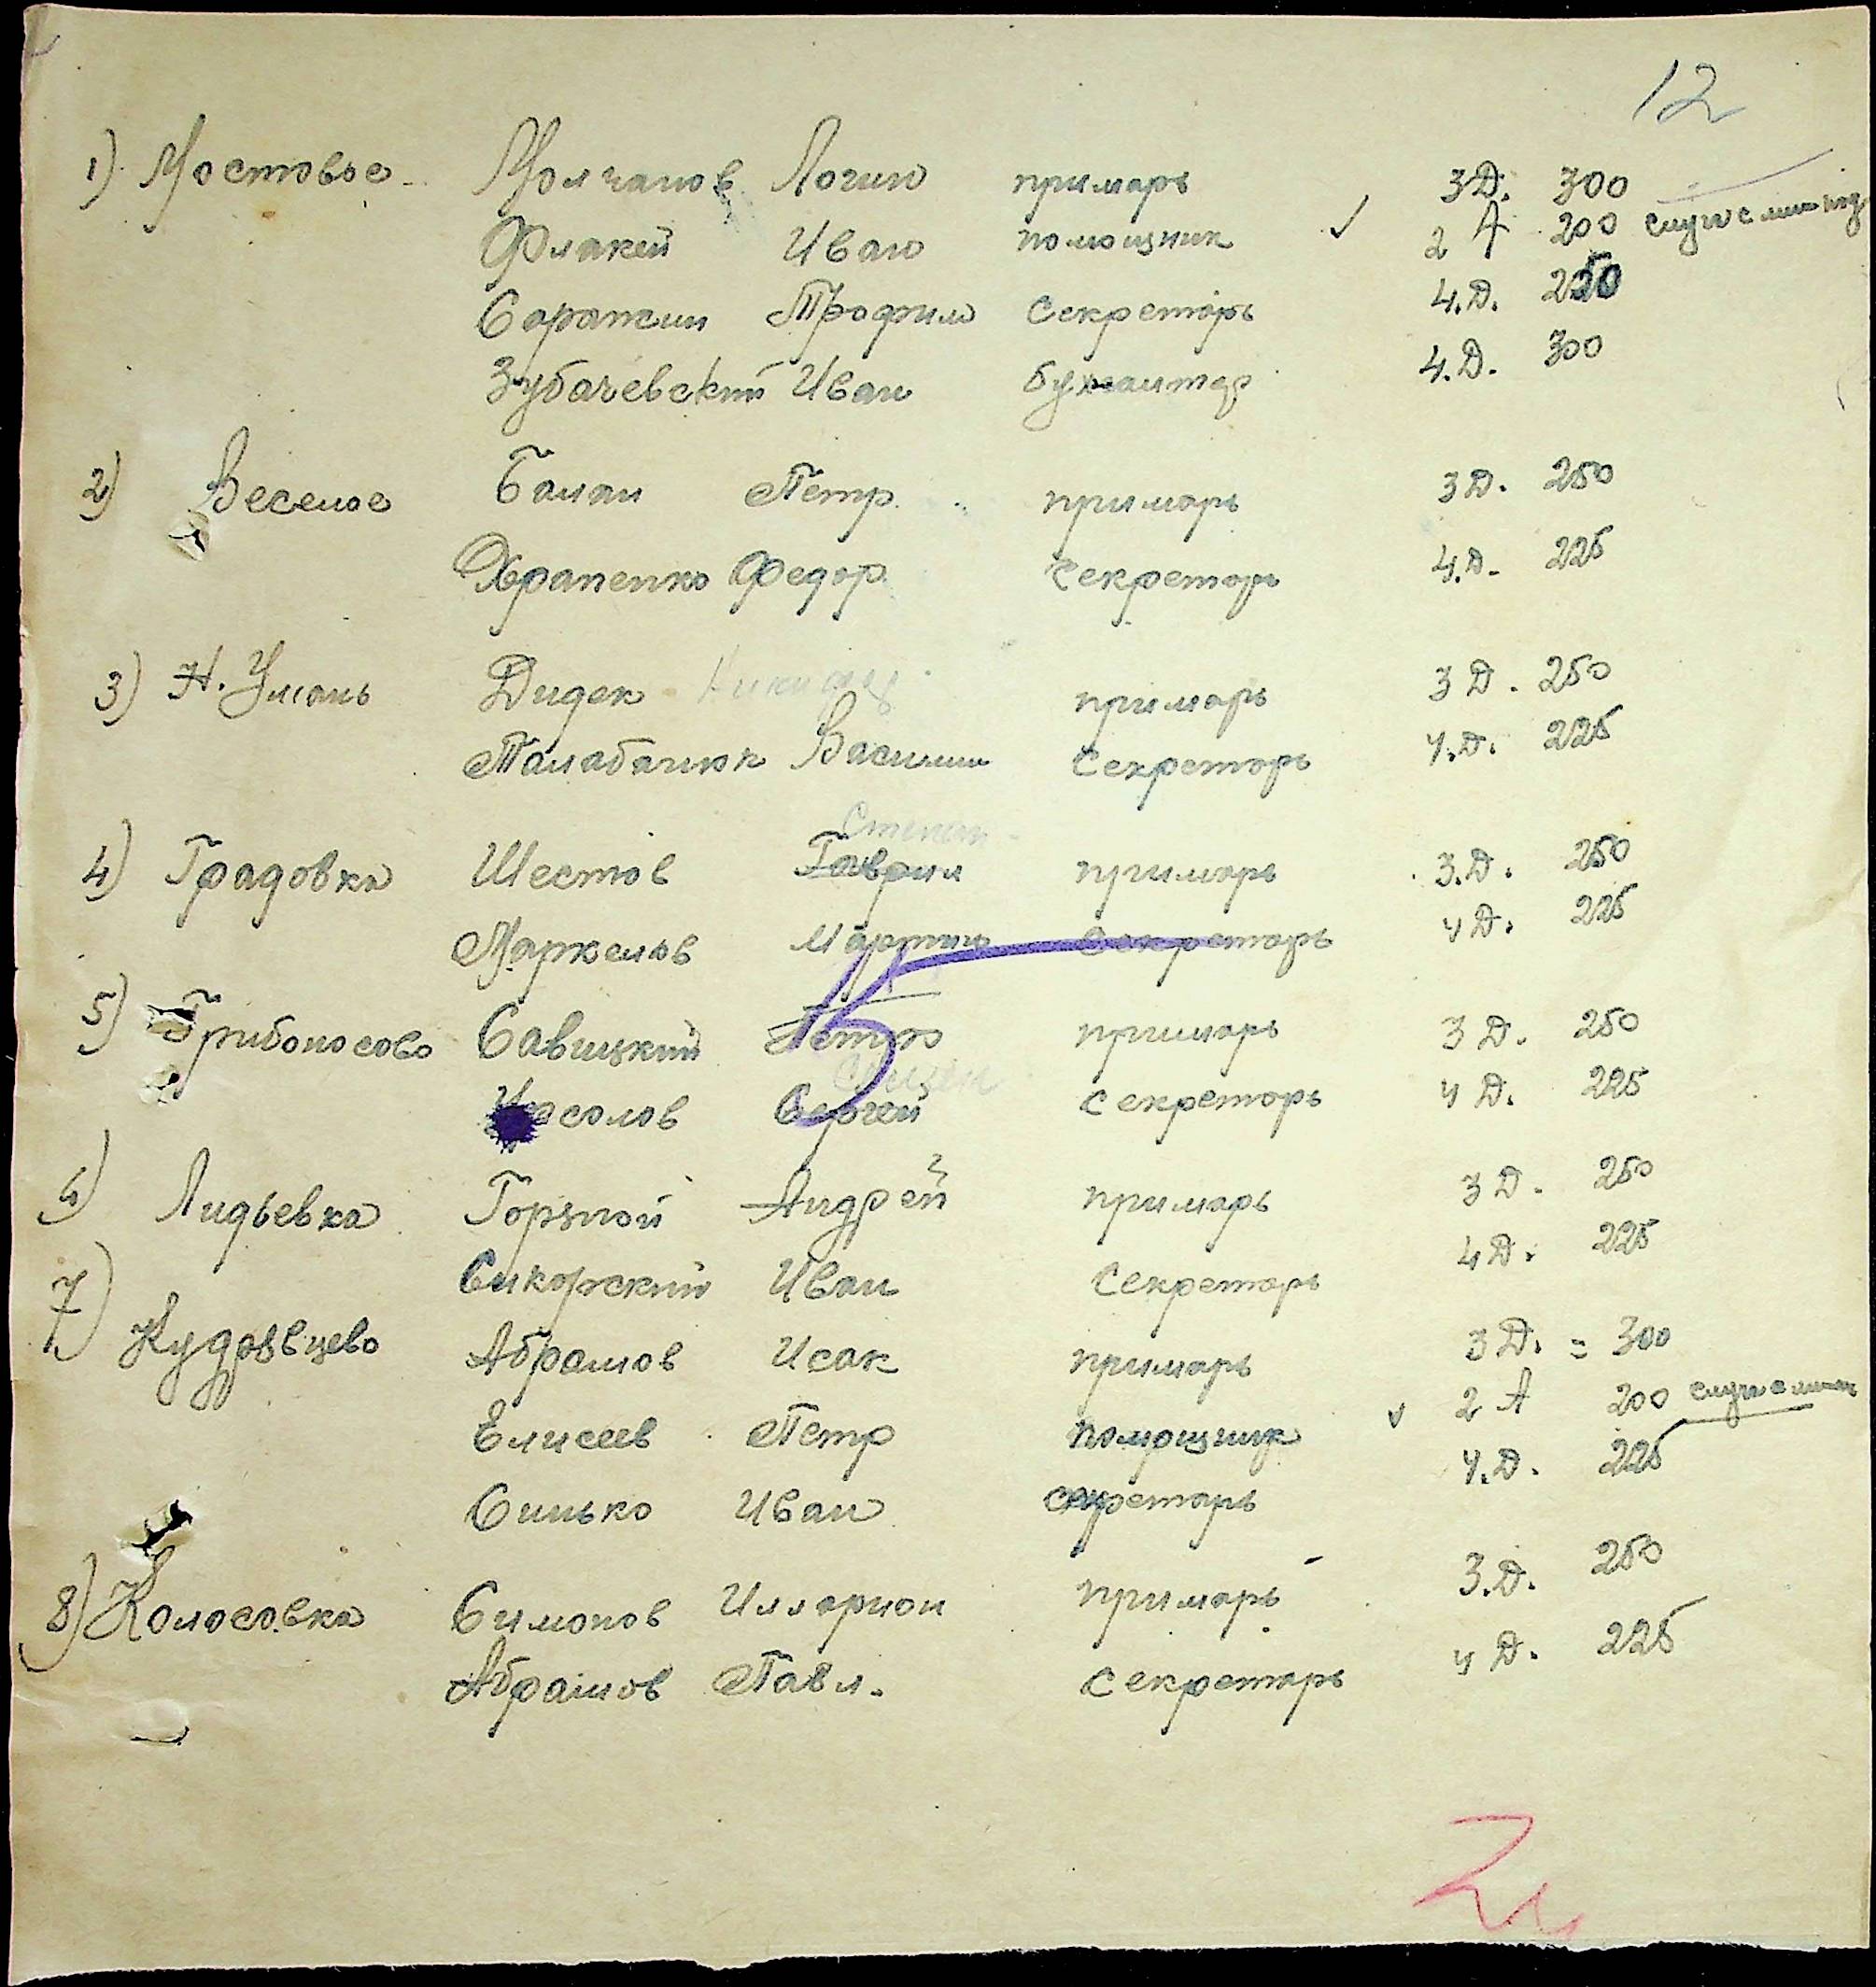 12
1) Мостовое Молчанов Логин примарь 3Д. 300
Флакей Иван помощник ✓ 2 А 200
Саражин Трофим Секретарь 4.Д. 250
Зубачевский Иван бухгалтер 4.Д. 300
2) Веселое Балан Петр примарь 3Д. 250
Храпенко Федор секретарь 4.Д. 225
3) Н. Умань Дидек примарь 3Д. 250
Талабанюк Василий Секретарь 4.Д. 225
Степан
4) Градовка Шестов Гаврил примарь 3.Д. 250
Маркелов Мартин Секретарь 4Д. 225
5) Грибоносово Савицкий Петро примарь 3Д. 250
Сергей секретарь 4Д. 225
6) Лидьевка Горяной Андрей примарь 3Д. 250
Сикорский Иван Секретарь 4Д. 225
7) Кудрявцево Абрамов Исак примарь 3Д. = 300
Елисеев Петр помощник ✓ 2 А 200
Синько Иван секретарь 4.Д. 225
8) Колосовка Симонов Илларион примарь 3.Д. 250
Абрамов Павл. Секретарь 4Д. 225